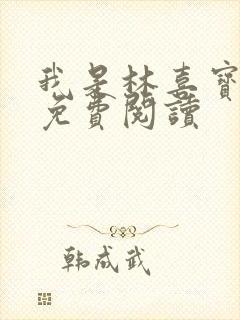 我是林喜寶
免費閱讀
韩成武